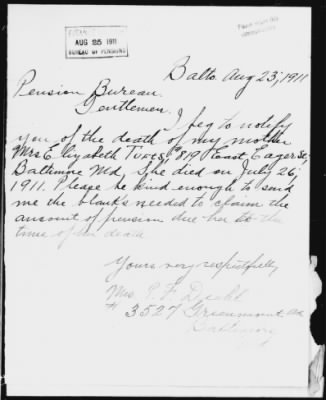 AUG 25 1911
BUREAU OF PENSIONS
Balto. Aug 23, 1911
Pension Bureau.
Gentlemen.
I beg to notify
you of the death of my mother
Mrs Elizabeth #819 East Eager St,
Baltimore Md, She died on July 26,
1911. Please be kind enough to send
me the blanks needed to claim the
amount of pension due her at the
time of her death
Yours very respectfully
Mrs. P. F.
# 3527 Greenmount Av
Baltimore